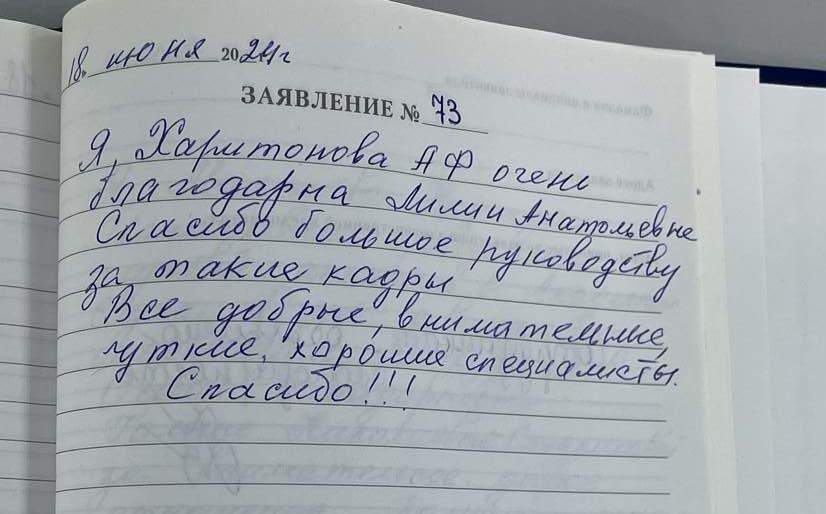 18. июня 2024г
ЗАЯВЛЕНИЕ № 73
Я, Харитонова А Ф очень
благодарна Лилии Анатольевне
Спасибо большое руководству
за такие кадры
Все добрые, внимательные,
чуткие, хорошие специалисты.
Спасибо!!!